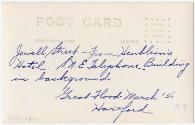 POST CARD
Jewell Street - From Heublein's
Hotel. S.N.E. Telephone Building
in background.
Great Flood March '36
Hartford